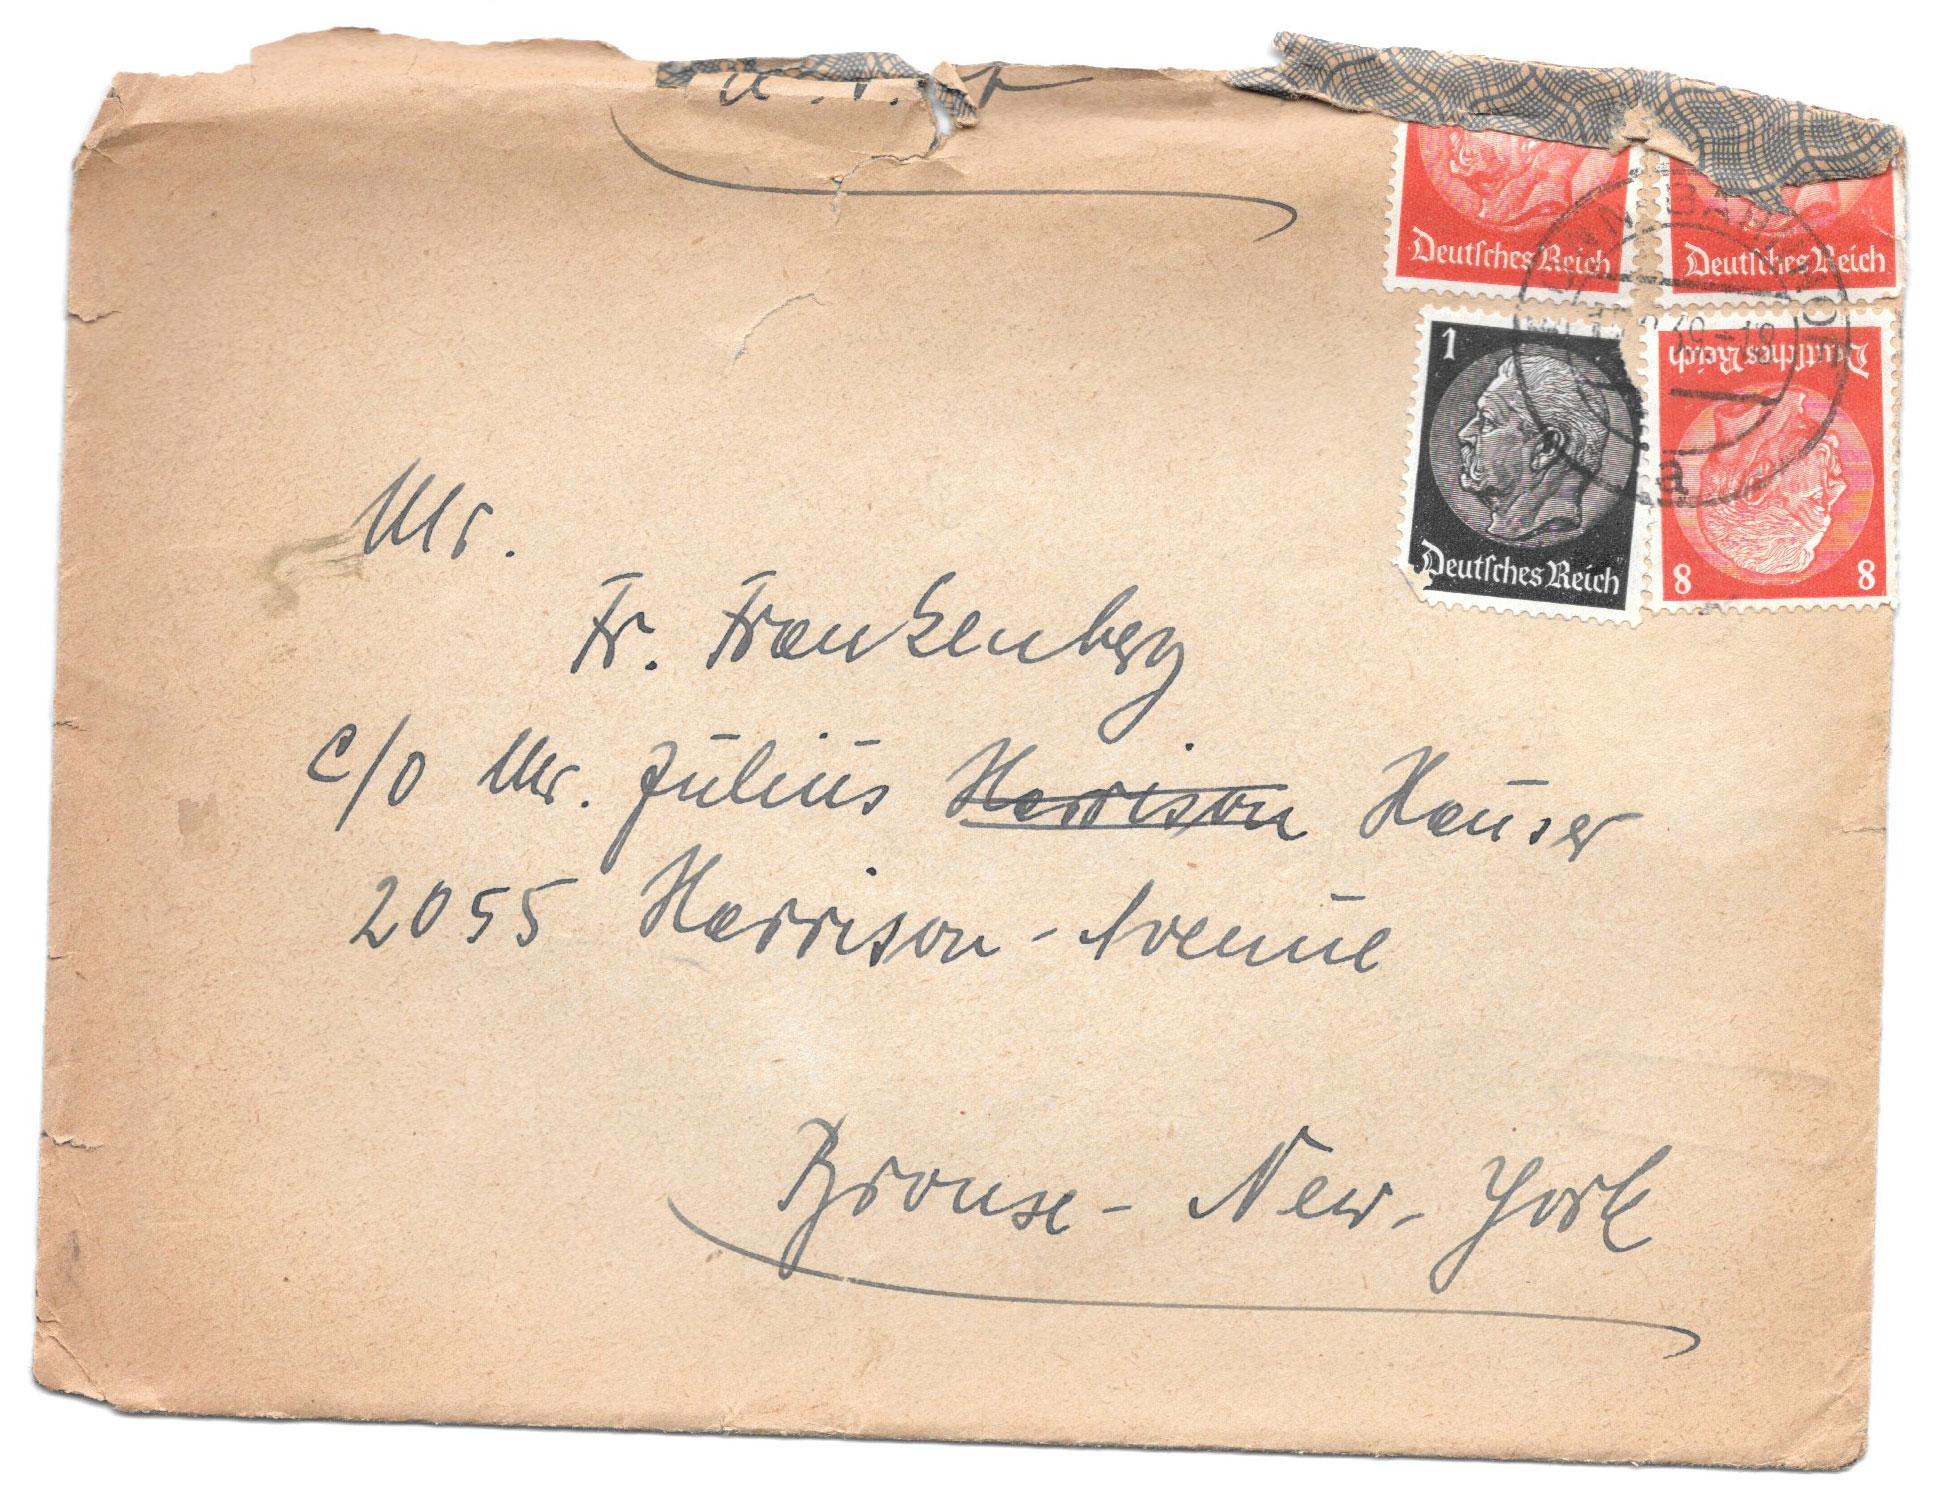 Deutsches Reich Deutsches Reich
BAHNHOF
39-18
a
1
Deutsches Reich
Deutsches Reich
8 8
Mr.
Fr. Frankenberg
c/o Mr. Julius Harrison Hauser
2055 Harrison-Avenue
Bronx - New-York